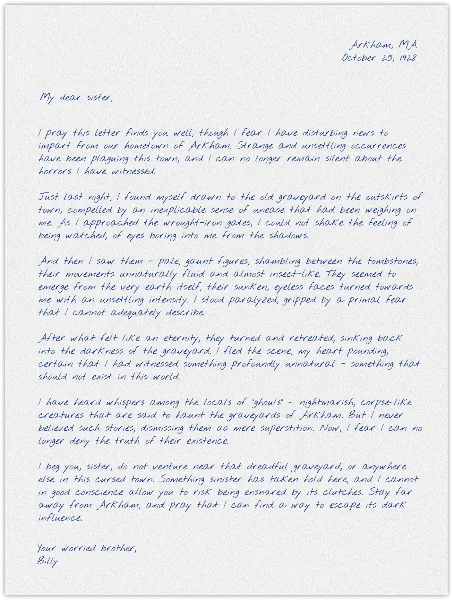 Arkham, MA
October 25, 1928
My dear sister,
I pray this letter finds you well, though I fear I have disturbing news to
impart from our hometown of Arkham. Strange and unsettling occurrences
have been plaguing this town, and I can no longer remain silent about the
horrors I have witnessed.
Just last night, I found myself drawn to the old graveyard on the outskirts of
town, compelled by an inexplicable sense of unease that had been weighing on
me. As I approached the wrought-iron gates, I could not shake the feeling of
being watched, of eyes boring into me from the shadows.
And then I saw them - pale, gaunt figures, shambling between the tombstones,
their movements unnaturally fluid and almost insect-like. They seemed to
emerge from the very earth itself, their sunken, eyeless faces turned towards
me with an unsettling intensity. I stood paralyzed, gripped by a primal fear
that I cannot adequately describe.
After what felt like an eternity, they turned and retreated, sinking back
into the darkness of the graveyard. I fled the scene, my heart pounding,
certain that I had witnessed something profoundly unnatural - something that
should not exist in this world.
I have heard whispers among the locals of "ghouls" - nightmarish, corpse-like
creatures that are said to haunt the graveyards of Arkham. But I never
believed such stories, dismissing them as mere superstition. Now, I fear I can no
longer deny the truth of their existence.
I beg you, sister, do not venture near that dreadful graveyard, or anywhere
else in this cursed town. Something sinister has taken hold here, and I cannot
in good conscience allow you to risk being ensnared by its clutches. Stay far
away from Arkham, and pray that I can find a way to escape its dark
influence.
Your worried brother,
Billy